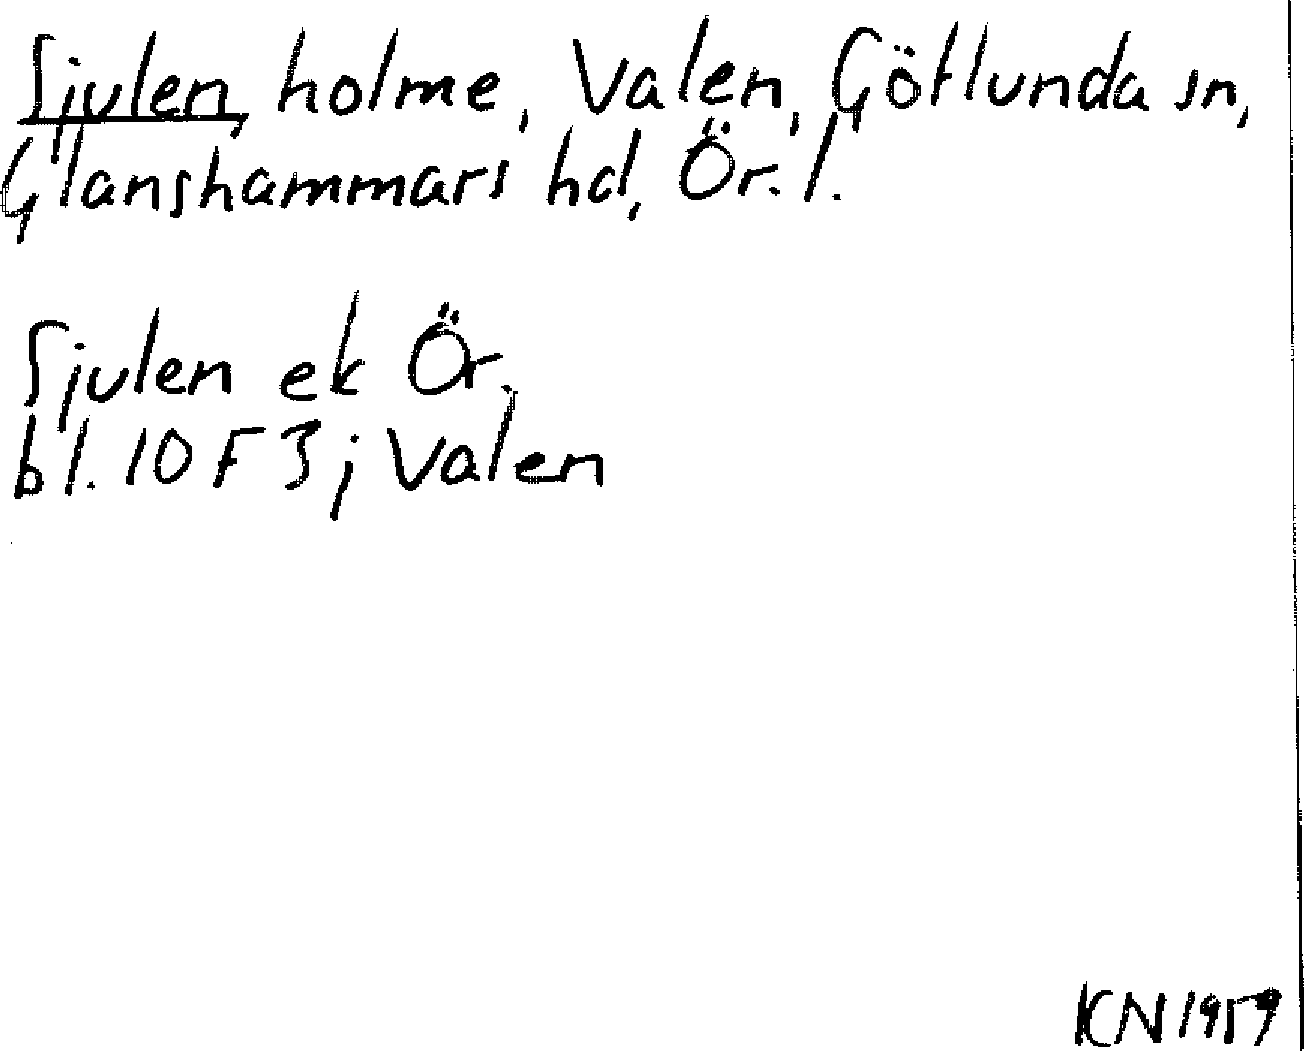 Sjulen, holme, Valen, Götlunda sn,
Glanshammars hd, Ör. l.
Sjulen ek Ör.
bl. 10 F 3; Valen
KN 1959